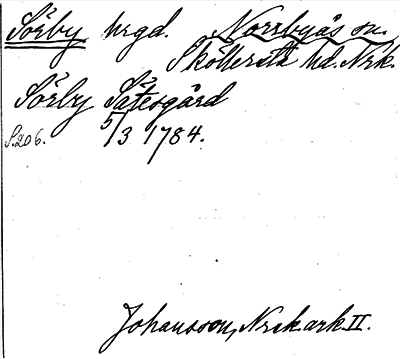 Sörby hrgd. Norrbyås sn.
Sköllersta hd. Nrk.
Sörby Sätesgård
S. 206. 5/3 1784.
Johansson, Nrsk. ark. II.